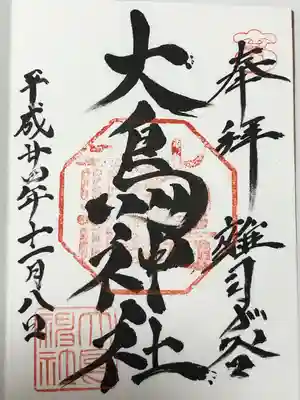 奉拝
雑司が谷
大鳥神社
平成廿四年十一月八日